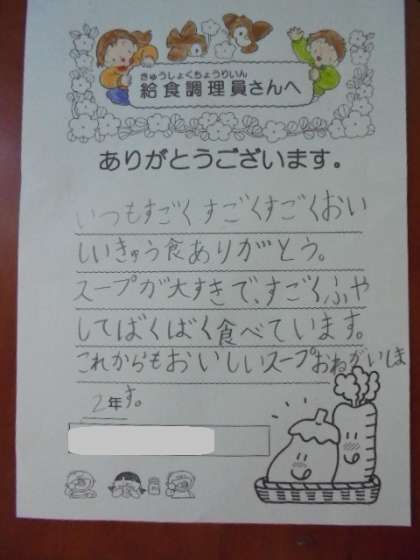 きゅうしょくちょうりいん
給食調理員さんへ
ありがとうございます。
いつもすごくすごくすごくおい
しいきゅう食ありがとう。
スープが大すきで、すごくふや
してばくばく食べています。
これからもおいしいスープおねがいしま
す。
2年